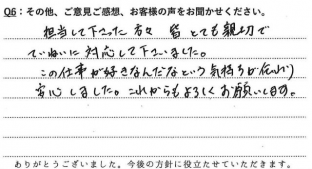 Q6：その他、ご意見ご感想、お客様の声をお聞かせください。
担当して下さった方々 皆 とても親切で
ていねいに対応して下さいました。
この仕事が好きなんだなという気持ちが伝わり
安心しました。これからもよろしくお願いします。
ありがとうございました。今後の方針に役立たせていただきます。